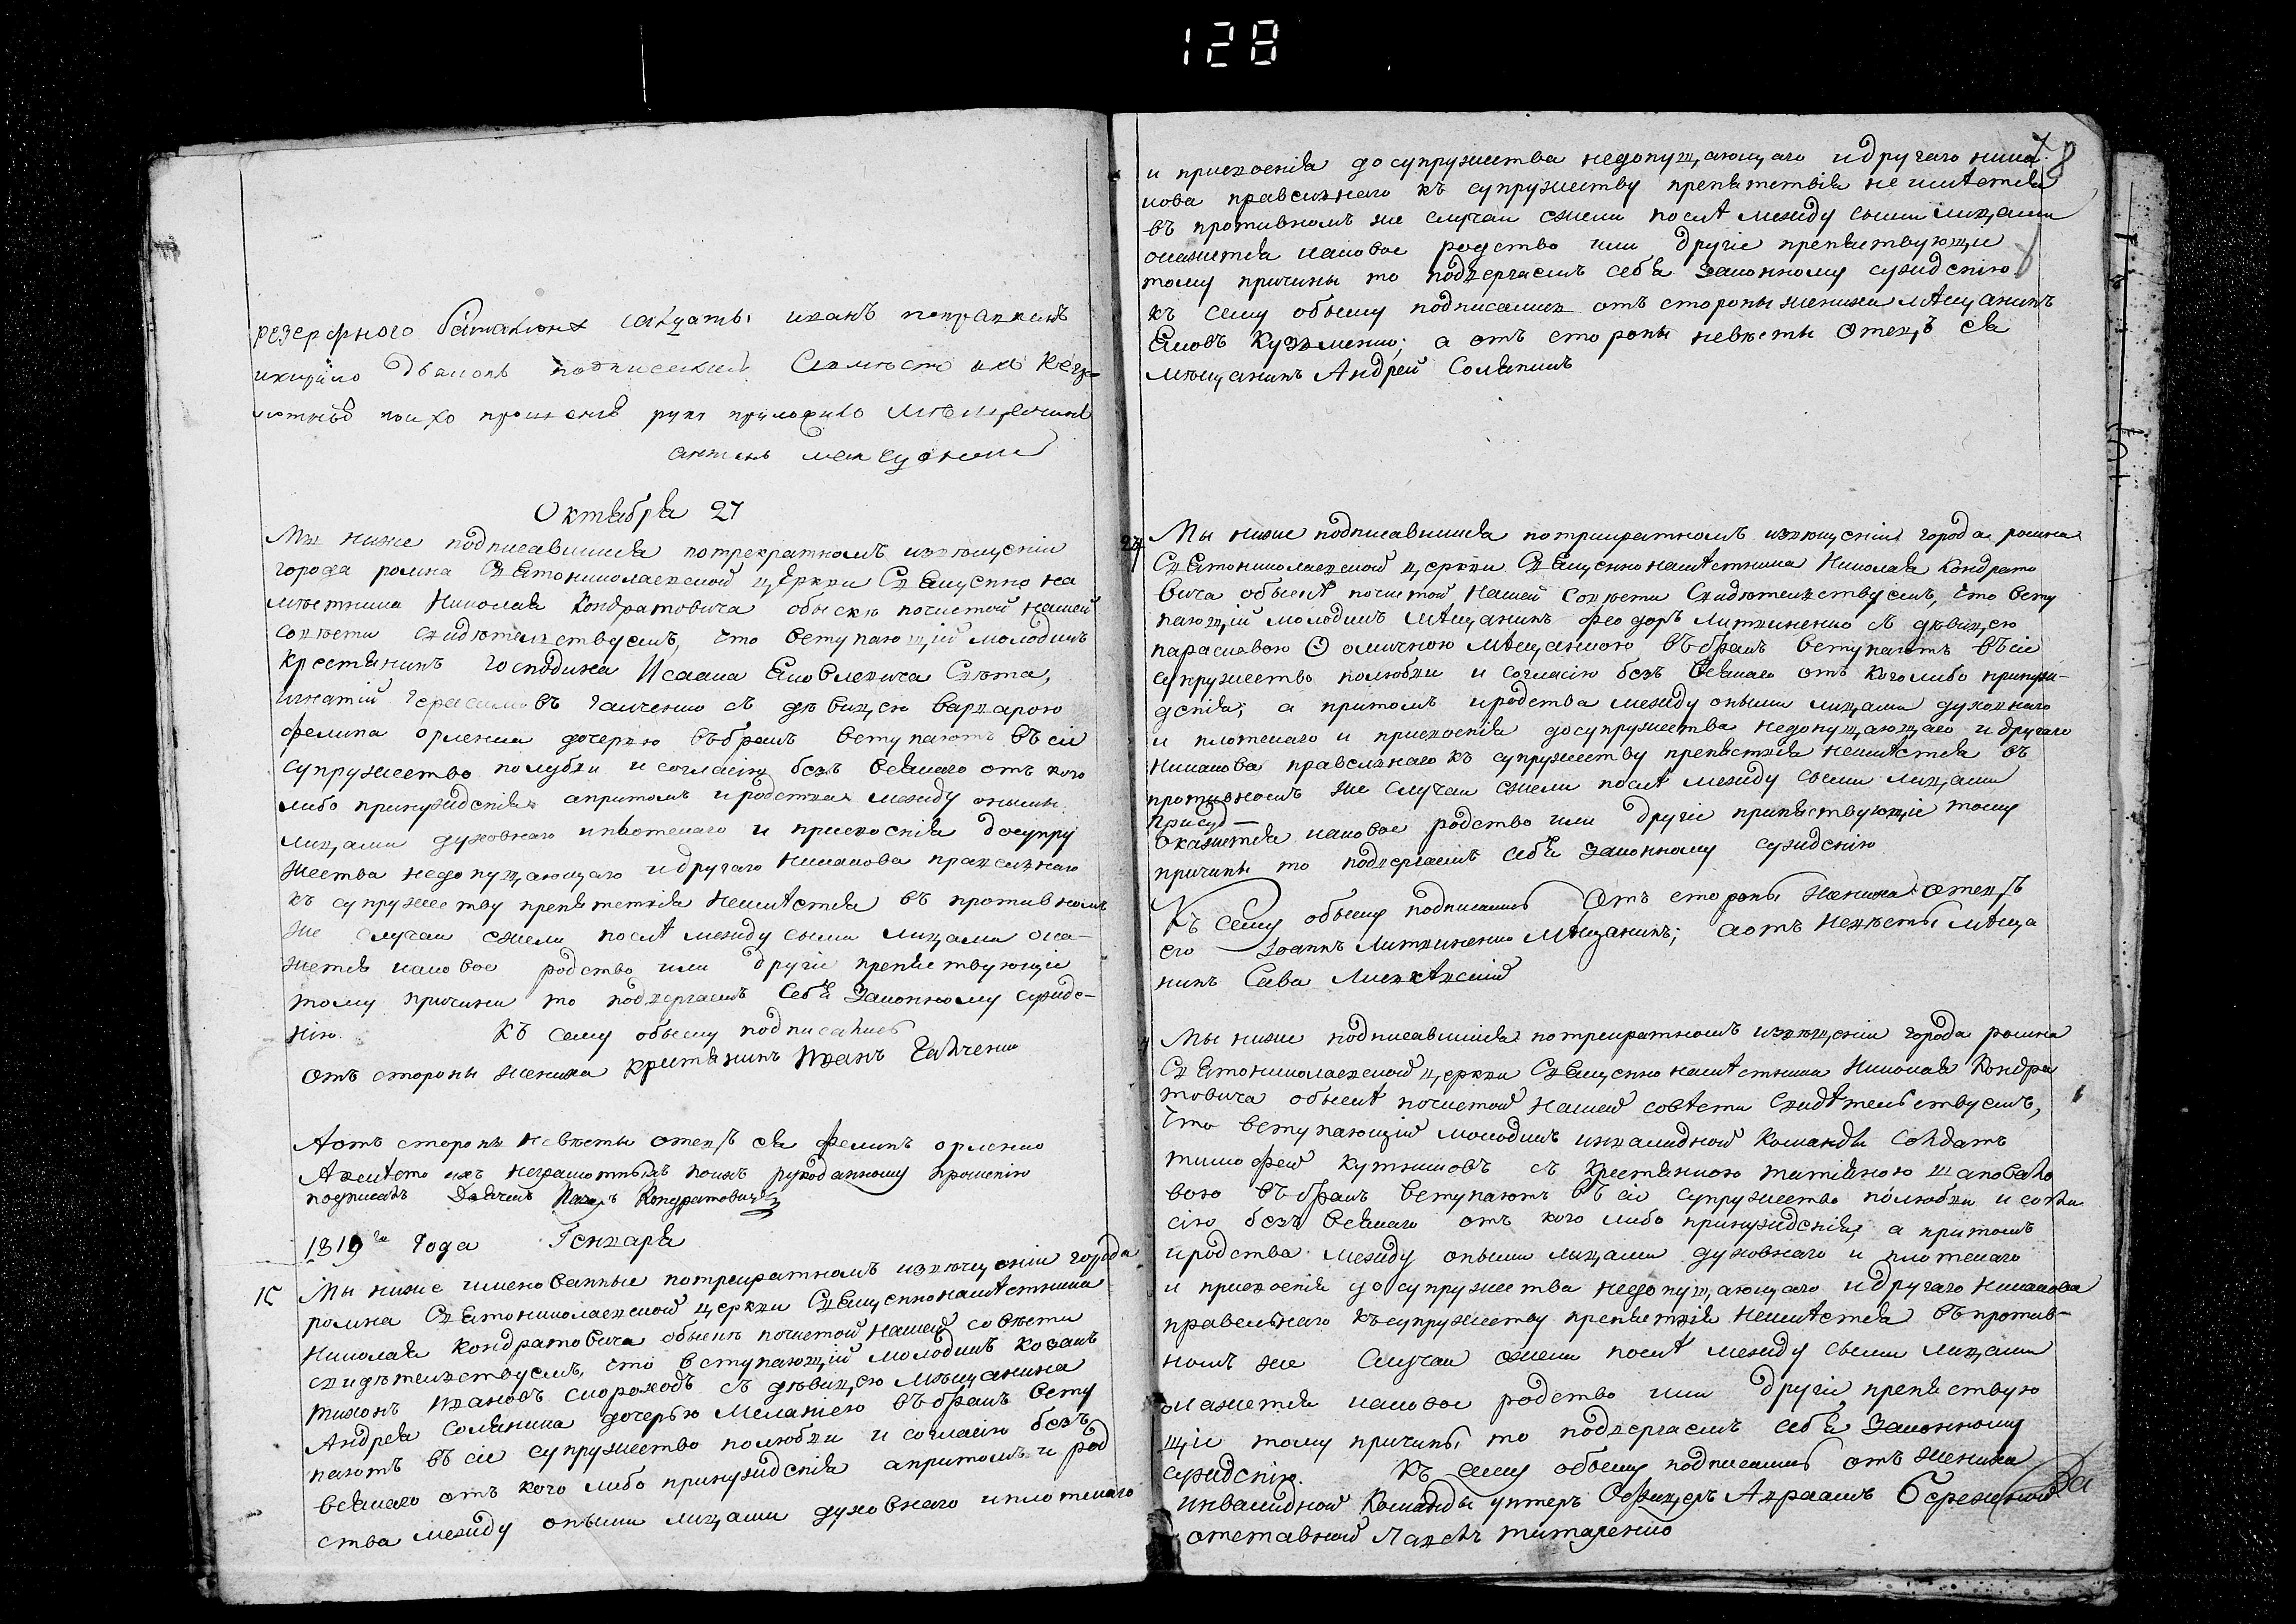 128
8
резерфного баталиона салдатъ иканъ
дьяконъ подписался
прошенію руку приложилъ мещенинъ
антонъ
Октября 27
Мы ниже подписавшиеся потрекратномъ извѣщеніи
города ромна Святониколаевской церкви Священно на
мѣстника Николая Кондратовича обыскѣ почистой нашей
совѣсти свидѣтелствуемъ, что вступающій молодикъ
Крестянинъ Господина Исаака Яковлевича Свѣта,
игнатій Герасимовъ Галченко съ дѣвицею варварою
филипа орленка дочерью въбракъ вступаютъ въсіе
супружество полубви и согласію безъ всякаго отъ кого
либо принужденія апритомъ иродства между оными
лицами духовнаго иплотскаго и приязненія досупру
жества недопущающаго идругаго никакова правилнаго
къ супружеству препятствія неимѣется въ противномъ
же случаи ежели послѣ между сыми лицами ока-
жется каковое родство или другіе препятствующіе
тому причини то подвергаемъ себя законному сужде-
нію. къ сему обыску подписались
отъ стороны жениха крестянинъ Иванъ Галченко
Аотъ стороны невѣсты отецъ ея филипъ орленко
Авмѣсто ихъ неграмотныхъ поихъ рукоданному прошенію
подписалъ Дьячокъ Кондратовичъ
1819 Года Генваря
15 Мы ниже именованные потрикратномъ извѣщеніи города
ромна Святониколаевской церкви Священнонамѣстника
Николая Кондратовича обыскѣ почистой нашей совѣсти
свидѣтелствуемъ, что вступающій молодикъ козакъ
тихонъ Ивановъ скороходъ съ дѣвицею мѣщанина
Андрея Соляника дочерью Меланиею въбракъ всту
паютъ въсіе супружество полюбви и согласію безъ
всякаго отъ кого либо принужденія апритомъ и род
ства между оными лицами духовнаго иплотскаго
и приязненія досупружества недопущающаго идругаго ника
кова правилнаго къ супружеству препятствія неимѣется
въ противномъ же случаи ежели послѣ между сыми лицами
окажется каковое родство или другіе препятствующіе
тому причины то подвергаемъ себя законному сужденію
къ сему обыску подписались отъ стороны жениха мѣщанинъ
Яковъ Кузменко; а отъ стороны невѣсты Отецъ ея
мѣщанинъ Андрей Соляникъ
27 Мы ниже подписавшиеся потрикратномъ извѣщеніи города ромна
Святониколаевской церкви Священнонамѣстника Николая Кондрато
вича обыскѣ почистой нашей совѣсти свидѣтелствуемъ, что всту
пающій молодикъ мѣщанинъ феодоръ Литвиненко съ дѣвицею
параскевою мѣщанкою въбракъ вступаютъ въсіе
супружество полюбви и согласію безъ всякаго отъ коголибо принуж-
денія; а притомъ иродства между оными лицами духовнаго
и плотскаго и приязненія досупружества недопущающаго и другаго
никакова правилнаго къ супружеству препятствія неимѣется въ
противномъ же случаи ежели послѣ между сыми лицами
окажется каковое родство или другіе припятствующіе тому
причины то подвергаемъ себя законному сужденію
Къ сему обыску подписались Отъ стороны жениха отецъ
его Іоаннъ Литвиненко Мѣщанинъ; аотъ невѣсты мѣща
нинъ Сава
Мы ниже подписавшиеся потрикратномъ извѣщеніи города ромна
Святониколаевской церкви Священнонамѣстника Николая Кондра
товича обыскѣ почистой нашей совѣсти свидѣтельствуемъ,
что вступающій молодикъ инвалидной команды солдатъ
тимофей Кутниковъ съ крестянкою татіяною шаповало
вою въбракъ вступаютъ въсіе супружество полюбви и согла
сію безъ всякаго отъ кого либо принужденія, а притомъ
иродства между оными лицами духовнаго и плотскаго
и приязненія досупружества недопущающаго идругаго никакова
правельнаго къ супружеству препятствія неимѣется въпротив-
номъ же случаи ежели послѣ между сыми лицами
окажется каковое родство или другіе препятствую
щіе тому причины то подвергаемъ себя законному
сужденію. къ сему обыску подписались отъ жениха
инвалидной команды унтеръ Офицеръ Авраамъ Бережной
отставной титаренко